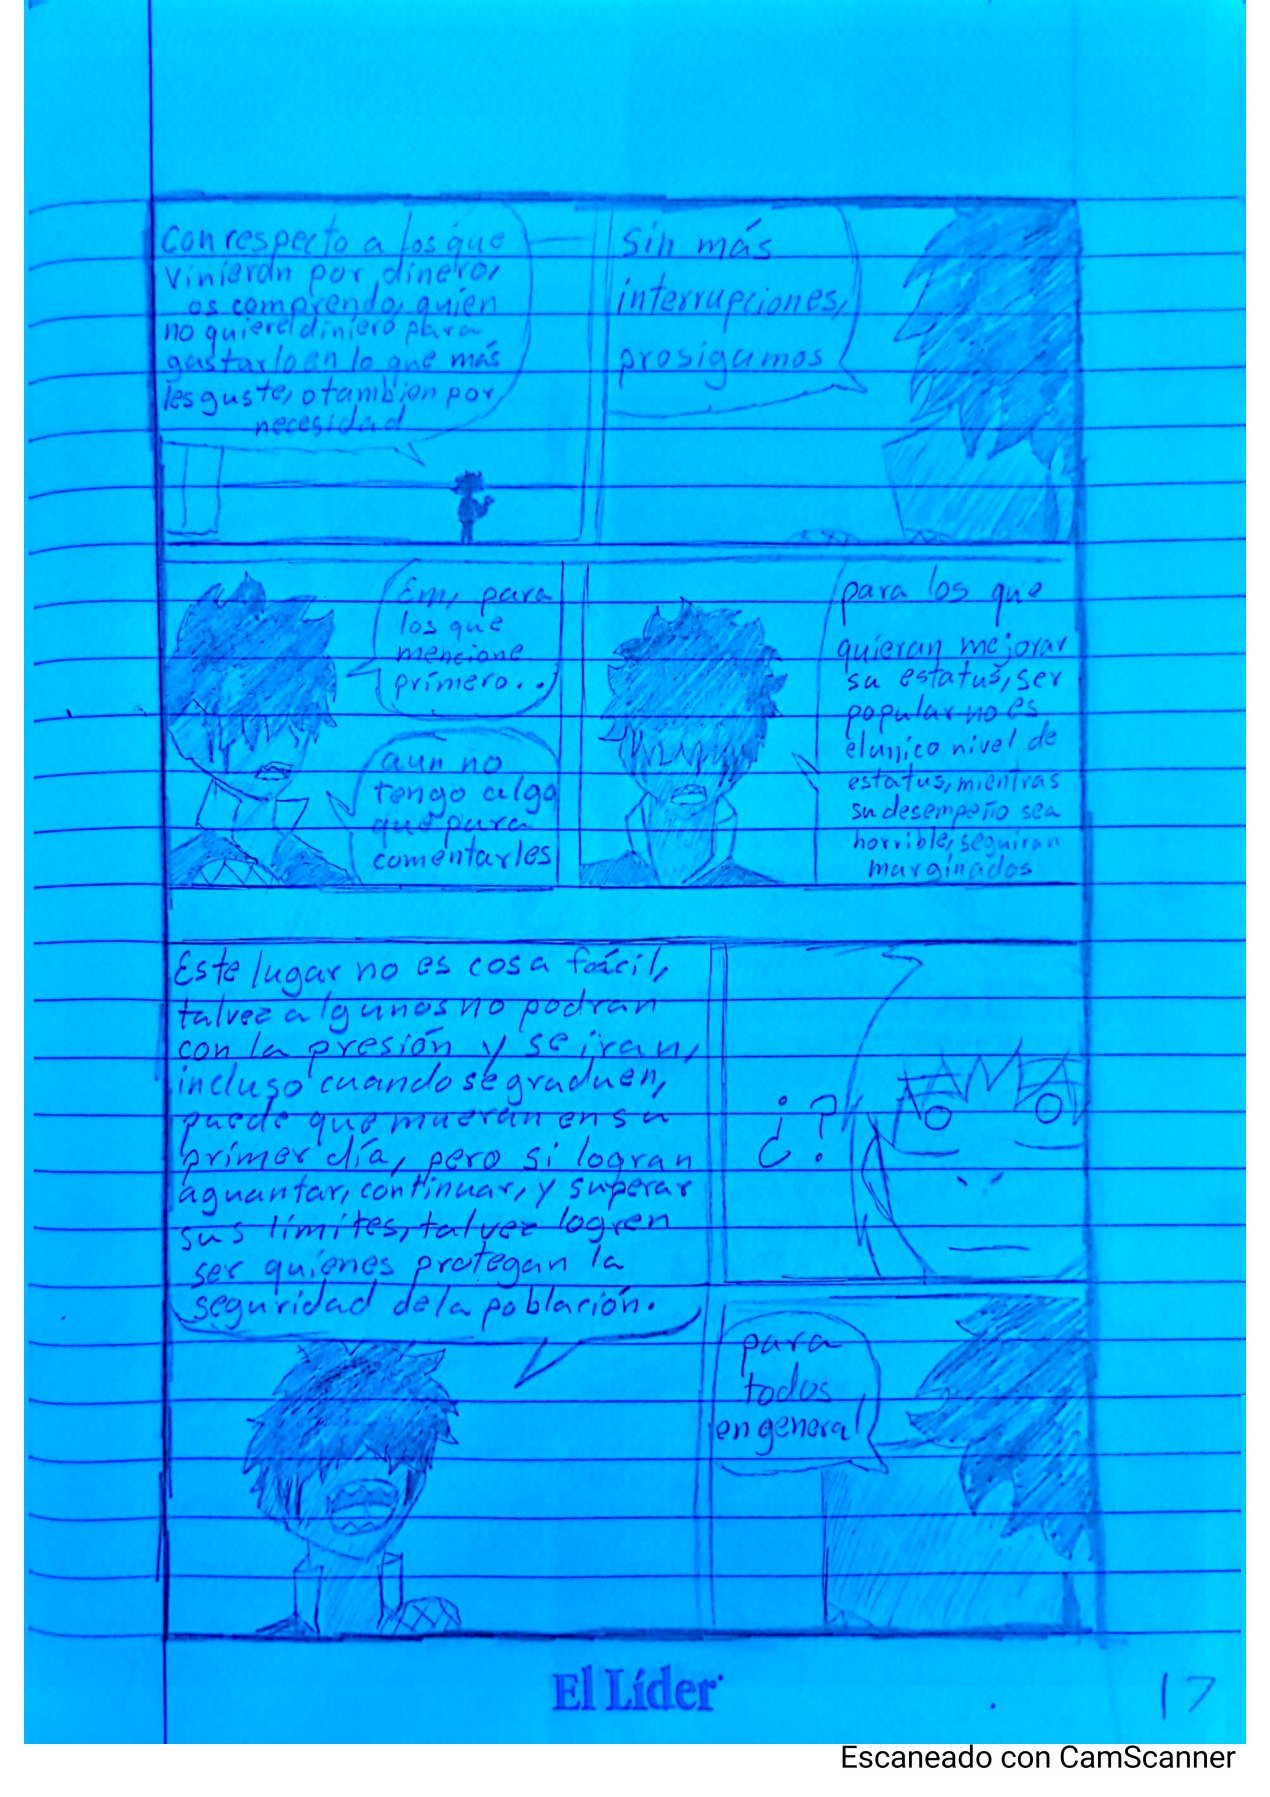 Con respecto a los que
vinieran por dinero,
os comprendo, quien
no quiere diniero para
gastarlo en lo que más
les guste, o tambien por
necesidad
Sin más
interrupciones,
prosigamos
Em, para
los que
mencione
primero...
aun no
tengo algo
que para
comentarles
para los que
quieran mejorar
su estatus, ser
popular no es
el unico nivel de
estatus, mientras
su desempeño sea
horrible, seguiran
marginados
Este lugar no es cosa fácil,
talvez algunos no podran
con la presión y se iran,
incluso cuando se graduen,
puede que mueran en su
primer día, pero si logran
aguantar, continuar, y superar
sus limites, talvez logren
ser quienes protegan la
seguridad de la población.
¿?
para
todos
en general
El Líder
17
Escaneado con CamScanner